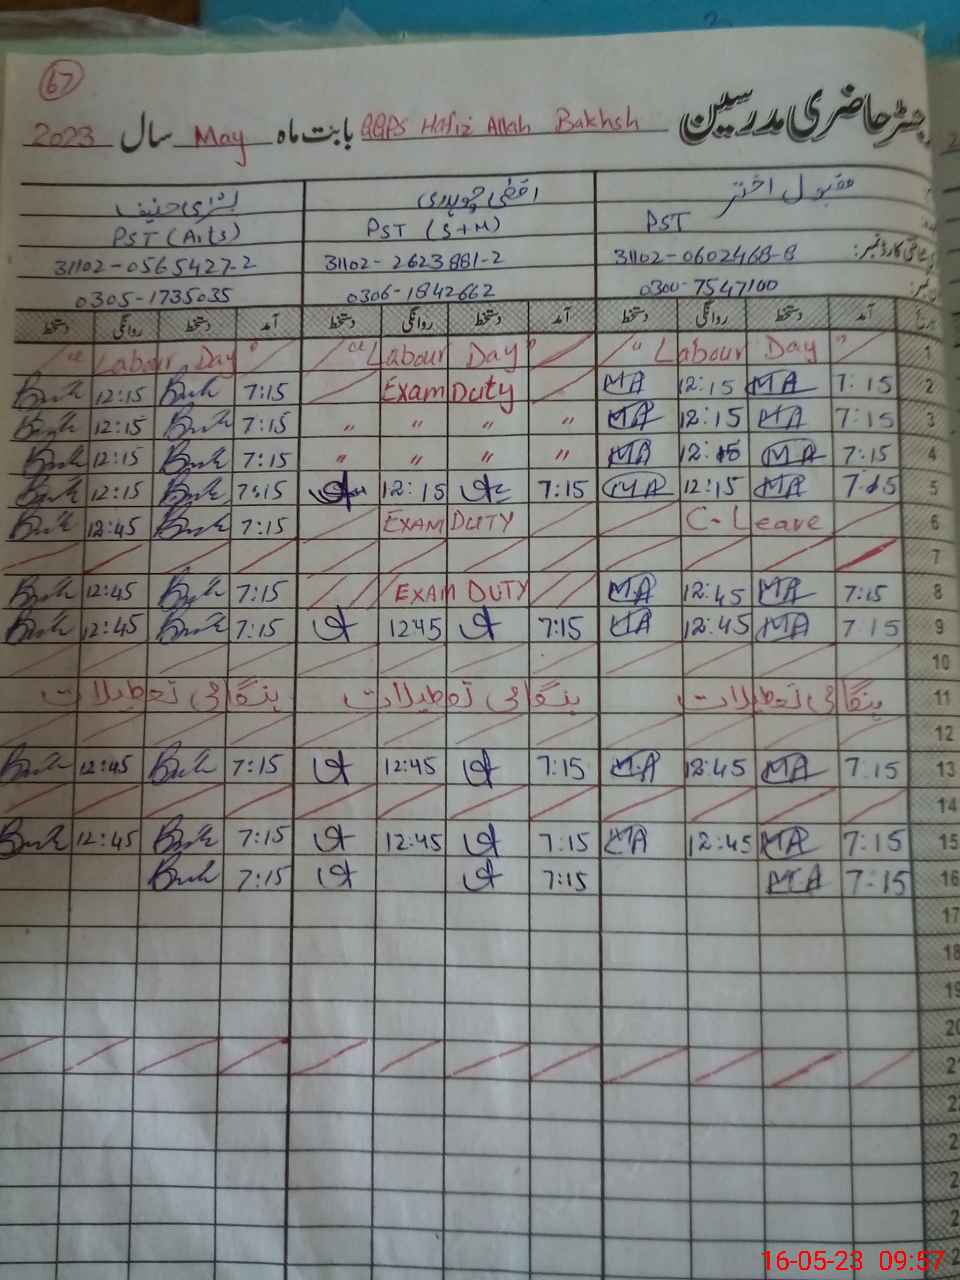 67
رجسٹر حاضری مدرسین GGPS Hafiz Allah Bakhsh بابت ماہ May سال 2023
مقبول اختر اقصٰی چوہدری بشریٰ حنیف
PST PST (S+M) PST (Arts)
31102-0602468-8 31102-2623881-2 31102-0565427-2
0300-7547100 0306-1842662 0305-1735035
آمد دستخط روانگی دستخط آمد دستخط روانگی دستخط آمد دستخط روانگی دستخط
1 "Labour Day" "Labour Day" "Labour Day"
2 7:15 MA 12:15 MA Exam Duty 7:15 12:15
3 7:15 MA 12:15 MA " " " " 7:15 12:15
4 7:15 MA 12:15 MA " " " " 7:15 12:15
5 7:15 MA 12:15 MA 7:15 12:15 7:15 12:15
6 C-Leave EXAM DUTY 7:15 12:45
7
8 7:15 MA 12:45 MA EXAM DUTY 7:15 12:45
9 7:15 MA 12:45 MA 7:15 1245 7:15 12:45
10
11 ہنگامی تعطیلات ہنگامی تعطیلات ہنگامی تعطیلات
12
13 7:15 MA 12:45 MA 7:15 12:45 7:15 12:45
14
15 7:15 MA 12:45 MA 7:15 12:45 7:15 12:45
16 7:15 MA 7:15 7:15
17
18
19
20
21
16-05-23 09:57